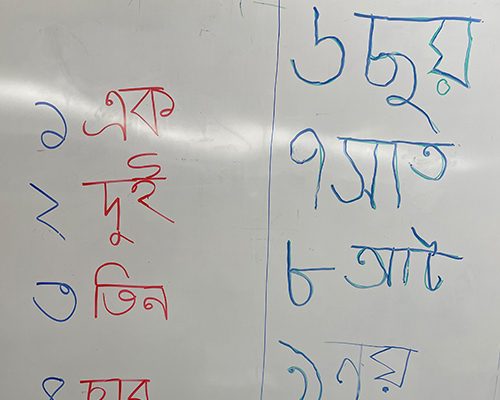 ১ এক
২ দুই
৩ তিন
৪ চার
৬ ছয়
৭ সাত
৮ আট
৯ নয়